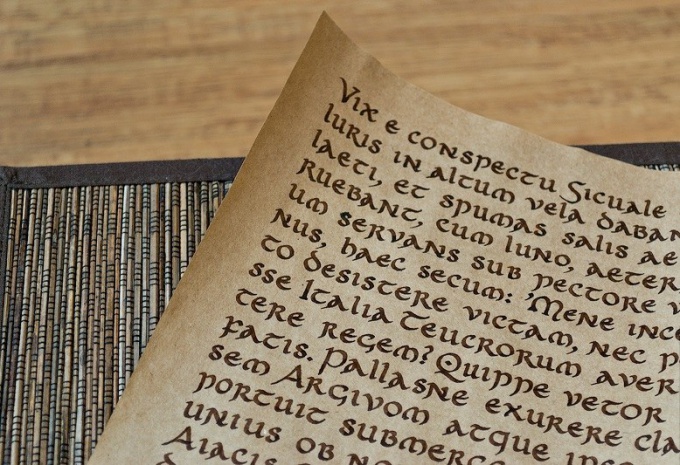 Vix e conspectu Sicuale
luris in altum vela daban
laeti, et spumas salis ae
ruebant, cum Iuno, aeter
um servans sub pectore v
nus, haec secum: 'Mene ince
to desistere victam, nec p
sse Italia Teucrorum aver
tere regem? Quippe vetor
fatis. Pallasne exurere cla
sem Argivom atque
portuit submerge
unius ob no
Aiacis